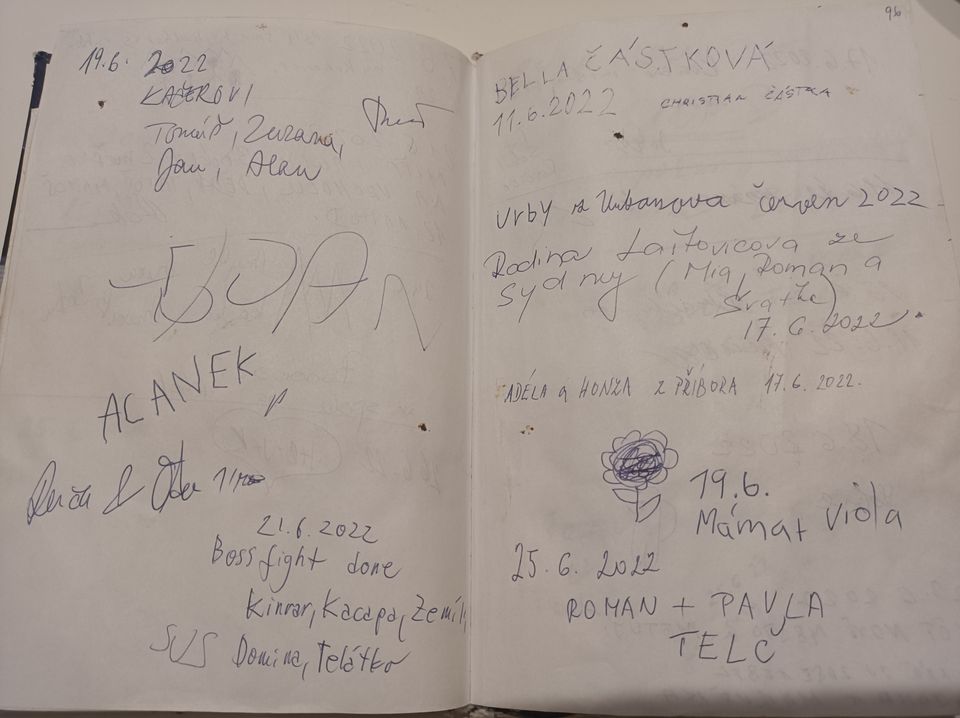 19.6. 2022
KAČEROVI
Tomáš, Zuzana,
Jan, Alan
ALANEK
21.6.2022
Boss fight done
Kinrar, Kacapa, Zemil
SUS Domina, Telátko
96
BELLA ČÁSTKOVÁ
11.6.2022 CHRISTIAN ČÁSTKA
Vrby z Urbanova červen 2022
Rodina ze
Sydney (Mia, Roman a
17.6.2022
ADÉLA a HONZA z PŘÍBORA 17.6.2022.
19.6.
Máma + Viola
25.6. 2022
ROMAN + PAVLA
TELČ